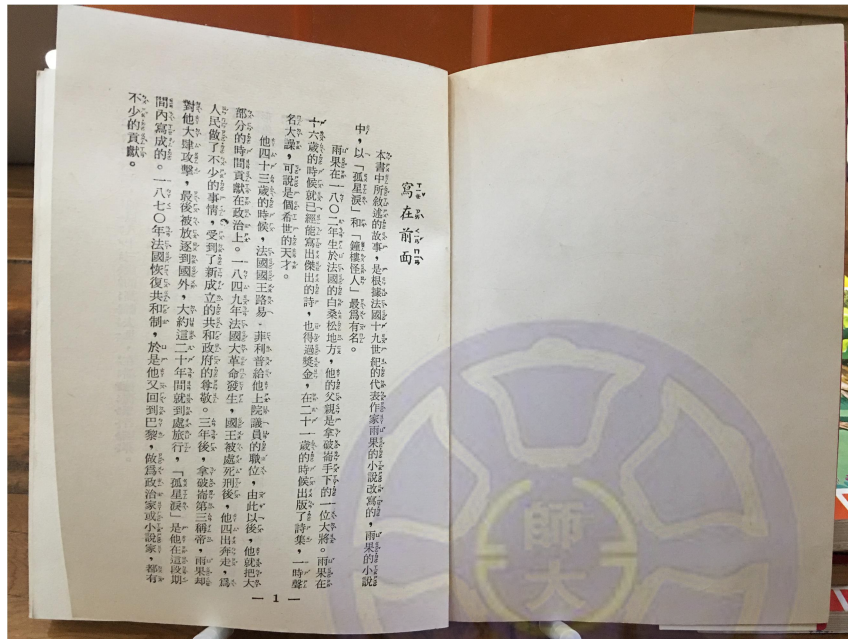 寫在前面
本書中所敘述的故事，是根據法國十九世紀的代表作家雨果的小說改寫的，雨果的小說
中，以「孤星淚」和「鐘樓怪人」最爲有名。
雨果在一八〇二年生於法國的白桑松地方，他的父親是拿破崙手下的一位大將。雨果在
十六歲的時候就已經能寫出傑出的詩，也得過獎金，在二十一歲的時候出版了詩集，一時聲
名大譟，可說是個希世的天才。
他四十三歲的時候，法國國王路易．菲利普給他上院議員的職位，由此以後，他就把大
部分的時間貢獻在政治上。一八四九年法國大革命發生，國王被處死刑後，他四出奔走，爲
人民做了不少的事情，受到了新成立的共和政府的尊敬。三年後，拿破崙第三稱帝，雨果却
對他大肆攻擊，最後被放逐到國外，大約這二十年間就到處旅行，「孤星淚」是他在這段期
間內寫成的。一八七〇年法國恢復共和制，於是他又回到巴黎，做爲政治家或小說家，都有
不少的貢獻。
— 1 —
師大